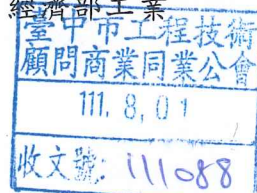 經濟部工業
臺中市工程技術
顧問商業同業公會
111. 8. 01
收文號: 111088